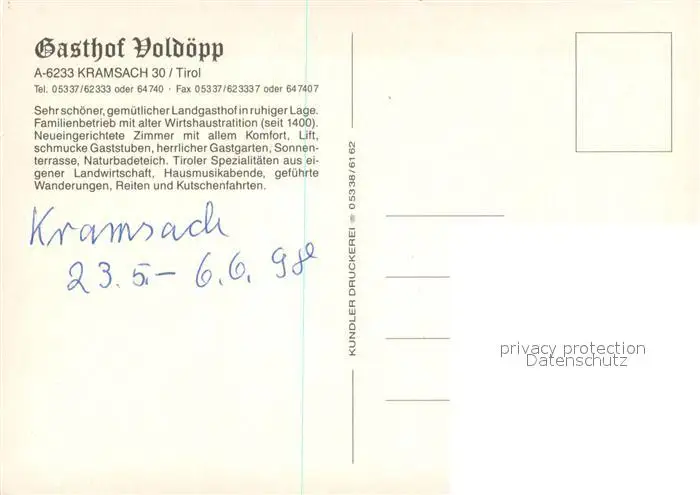 Gasthof Voldöpp
A-6233 KRAMSACH 30 / Tirol
Tel. 05337/62333 oder 64740 · Fax 05337/623337 oder 647407
Sehr schöner, gemütlicher Landgasthof in ruhiger Lage.
Familienbetrieb mit alter Wirtshaustratition (seit 1400).
Neueingerichtete Zimmer mit allem Komfort, Lift,
schmucke Gaststuben, herrlicher Gastgarten, Sonnen-
terrasse, Naturbadeteich. Tiroler Spezialitäten aus ei-
gener Landwirtschaft, Hausmusikabende, geführte
Wanderungen, Reiten und Kutschenfahrten.
Kramsach
23.5.– 6.6. 98
KUNDLER DRUCKEREI ☏ 05338/6162
privacy protection
Datenschutz